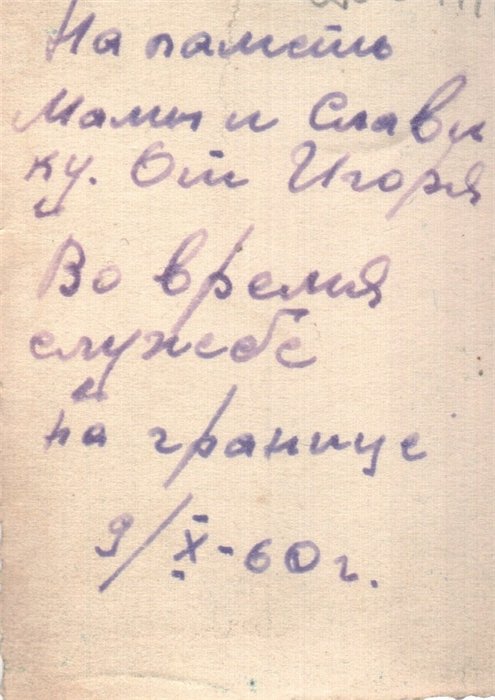 На память
Мамы и Слави
ку. От Игоря
Во время
службе
на границе
9/X-60 г.